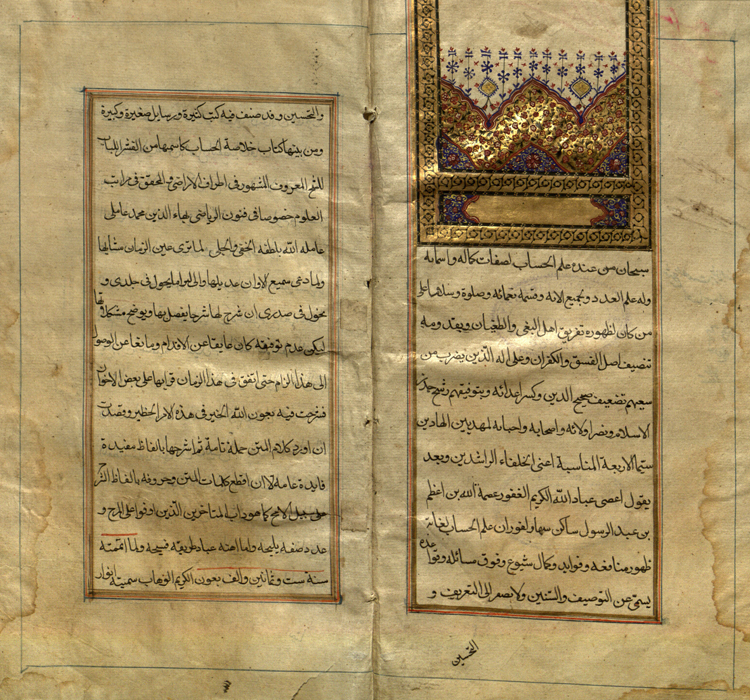 سبحان من عنده علم الحساب لصفات كماله واسمائه
وله علم العدد وجميع الائه وقسمة نعمائه وصلوة وسلاما على
من كان لظهوره تفريق اهل البغى والطغيان وبقدومه
تنصيف اصل الفسق والكفران وعلى اله الذين بضرب من
سيفهم تضعيف صحيح الدين وكسر اعدائه وبتوفيقهم
الاسلام ونصر اولائه واصحابه واحبابه لمهديين الهادين
سيما الاربعة المناسبة اعنى الخلفاء الراشدين وبعد
يقول اعصى عباد الله الكريم الغفور عصمة الله بن اعظم
بن عبد الرسول ساكن سهارنفور ان علم الحساب لغاية
ظهور منافعه وفوايده وكمال شيوع وفوق مسائله وقواعده
يستغنى عن التوصيف والتبيين ولا يفتقر الى التعريف و
التحسين
والتحسين وقد صنف فيه كتب كثيرة ورسايل صغيرة وكبيرة
ومن بينها كتاب خلاصة الحساب كاسمها من القشر اللباب
للشيخ المعروف المشهور فى اطراف الاراضى والمحقق فى مراتب
العلوم خصوصا فى فنون الرياضى بهاء الدين محمد عاملى
عامله الله بلطفه الخفى والجلى لما ترى عين الزمان مثالها
ولما دعى سميع الاوان عديلها والى الواما يجول فى خلدى و
يحول فى صدرى ان شرح لها شرحا يفصل بها ويوضح مشكلاتها
ليكن عدم توفيقه كان عايقا عن الاقدام ومانعا عن الوصول
الى هذا المرام حتى اتفق فى هذا الزمان قراتها على بعض الاخوان
فشرعت فيه بعون الله الخبير فى هذه الامر الخطير وقصدت
ان اورد كلام المتن جملة تامة ثم اشرحها بالفاظ مفيدة
فايدة عامه لا ان اقطع كلمات المتن وحروفه بالفاظ الشرح
على سبيل كما هو داب المتاخرين الذين اوفوا على المرج و
عدد صفة مليحه واما اهنه عباد طريقه فسيحه ولما اتممته
سنة ست وثمانين والف بعون الكريم الوهاب سميته انوار